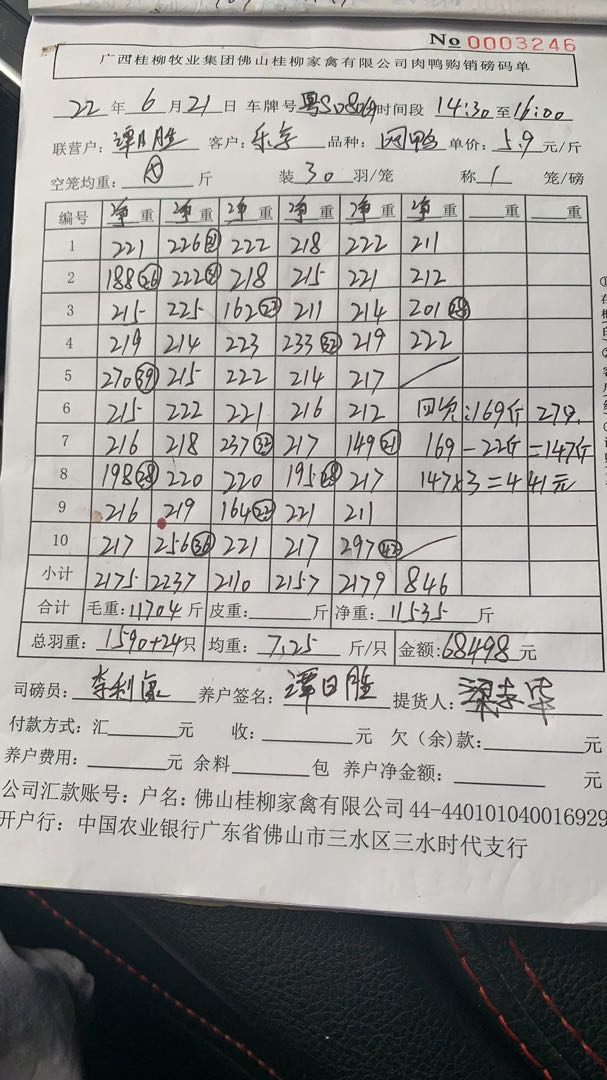 No 0003246
广西桂柳牧业集团佛山桂柳家禽有限公司肉鸭购销磅码单
22 年 6 月 21 日 车牌号 粤S0809 时间段 14:30 至 16:00
联营户: 谭日胜 客户: 乐享 品种: 因鸭 单价: 5.9 元/斤
空笼均重: 斤 装 30 羽/笼 称 1 笼/磅
编号 净重 净重 净重 净重 净重 净重 重 重
1 221 226(31) 222 218 222 211
2 188(26) 222(31) 218 215 221 212
3 215 225 162(23) 211 214 201(28)
4 219 214 223 233(32) 219 222
5 270(39) 215 222 214 217
6 215 222 221 216 212 回资:169斤 27只.
7 216 218 237(32) 217 149(21) 169-22斤=147斤
8 198(28) 220 220 195(28) 217 147×3=441元
9 216 219 164(22) 221 211
10 217 256(36) 221 217 297(42)
小计 2175 2237 2110 2157 2179 846
合计 毛重:11704 斤 皮重: 斤 净重: 11535 斤
总羽重: 1590+24只 均重: 7.25 斤/只 金额:68498元
司磅员: 李利 养户签名: 谭日胜 提货人: 梁
付款方式: 汇 元 收: 元 欠(余)款: 元
养户费用: 元 余料 包 养户净金额: 元
公司汇款账号: 户名: 佛山桂柳家禽有限公司 44-440101040016929
开户行: 中国农业银行广东省佛山市三水区三水时代支行